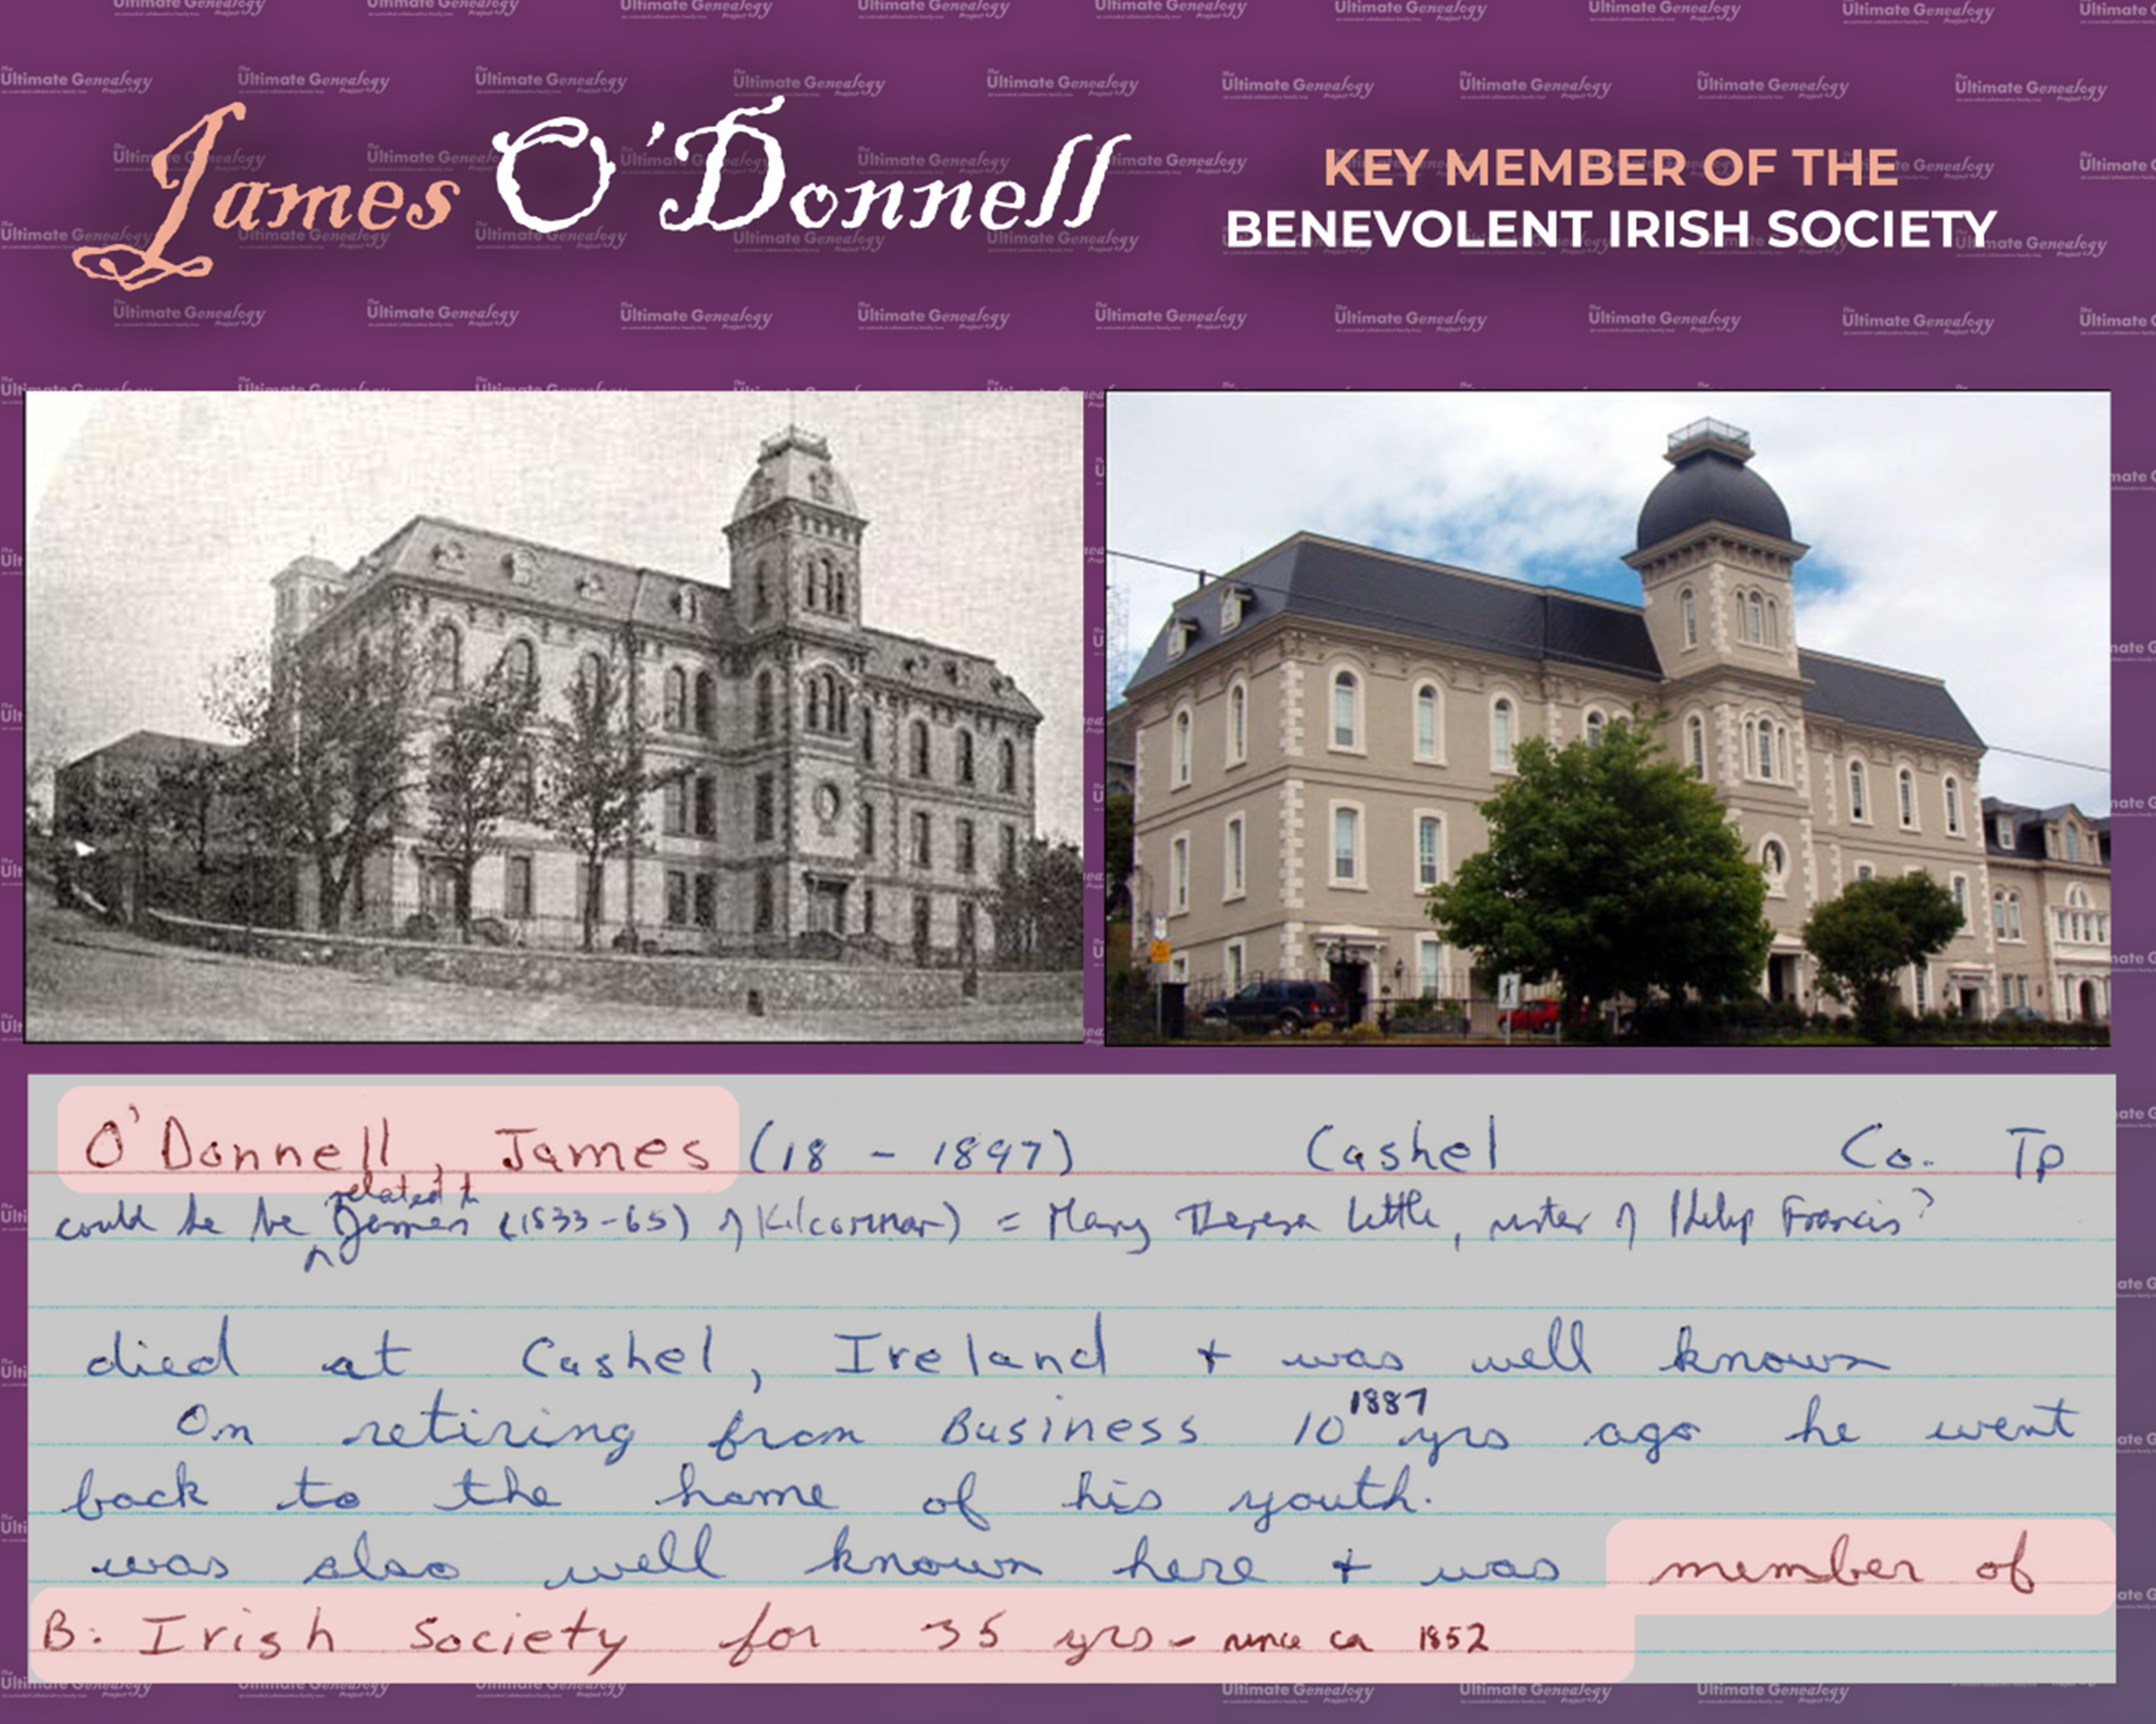 James O'Donnell
KEY MEMBER OF THE
BENEVOLENT IRISH SOCIETY
O'Donnell, James (18 - 1897) Cashel Co. Tp
related to
could be be James (1833-65) of Kilcommar) = Mary Theresa Little, sister of Philip Francis?
died at Cashel, Ireland + was well known
1887
On retiring from Business 10 yrs ago he went
back to the home of his youth.
was also well known here + was member of
B. Irish Society for 35 yrs - since ca 1852
The Ultimate Genealogy Project